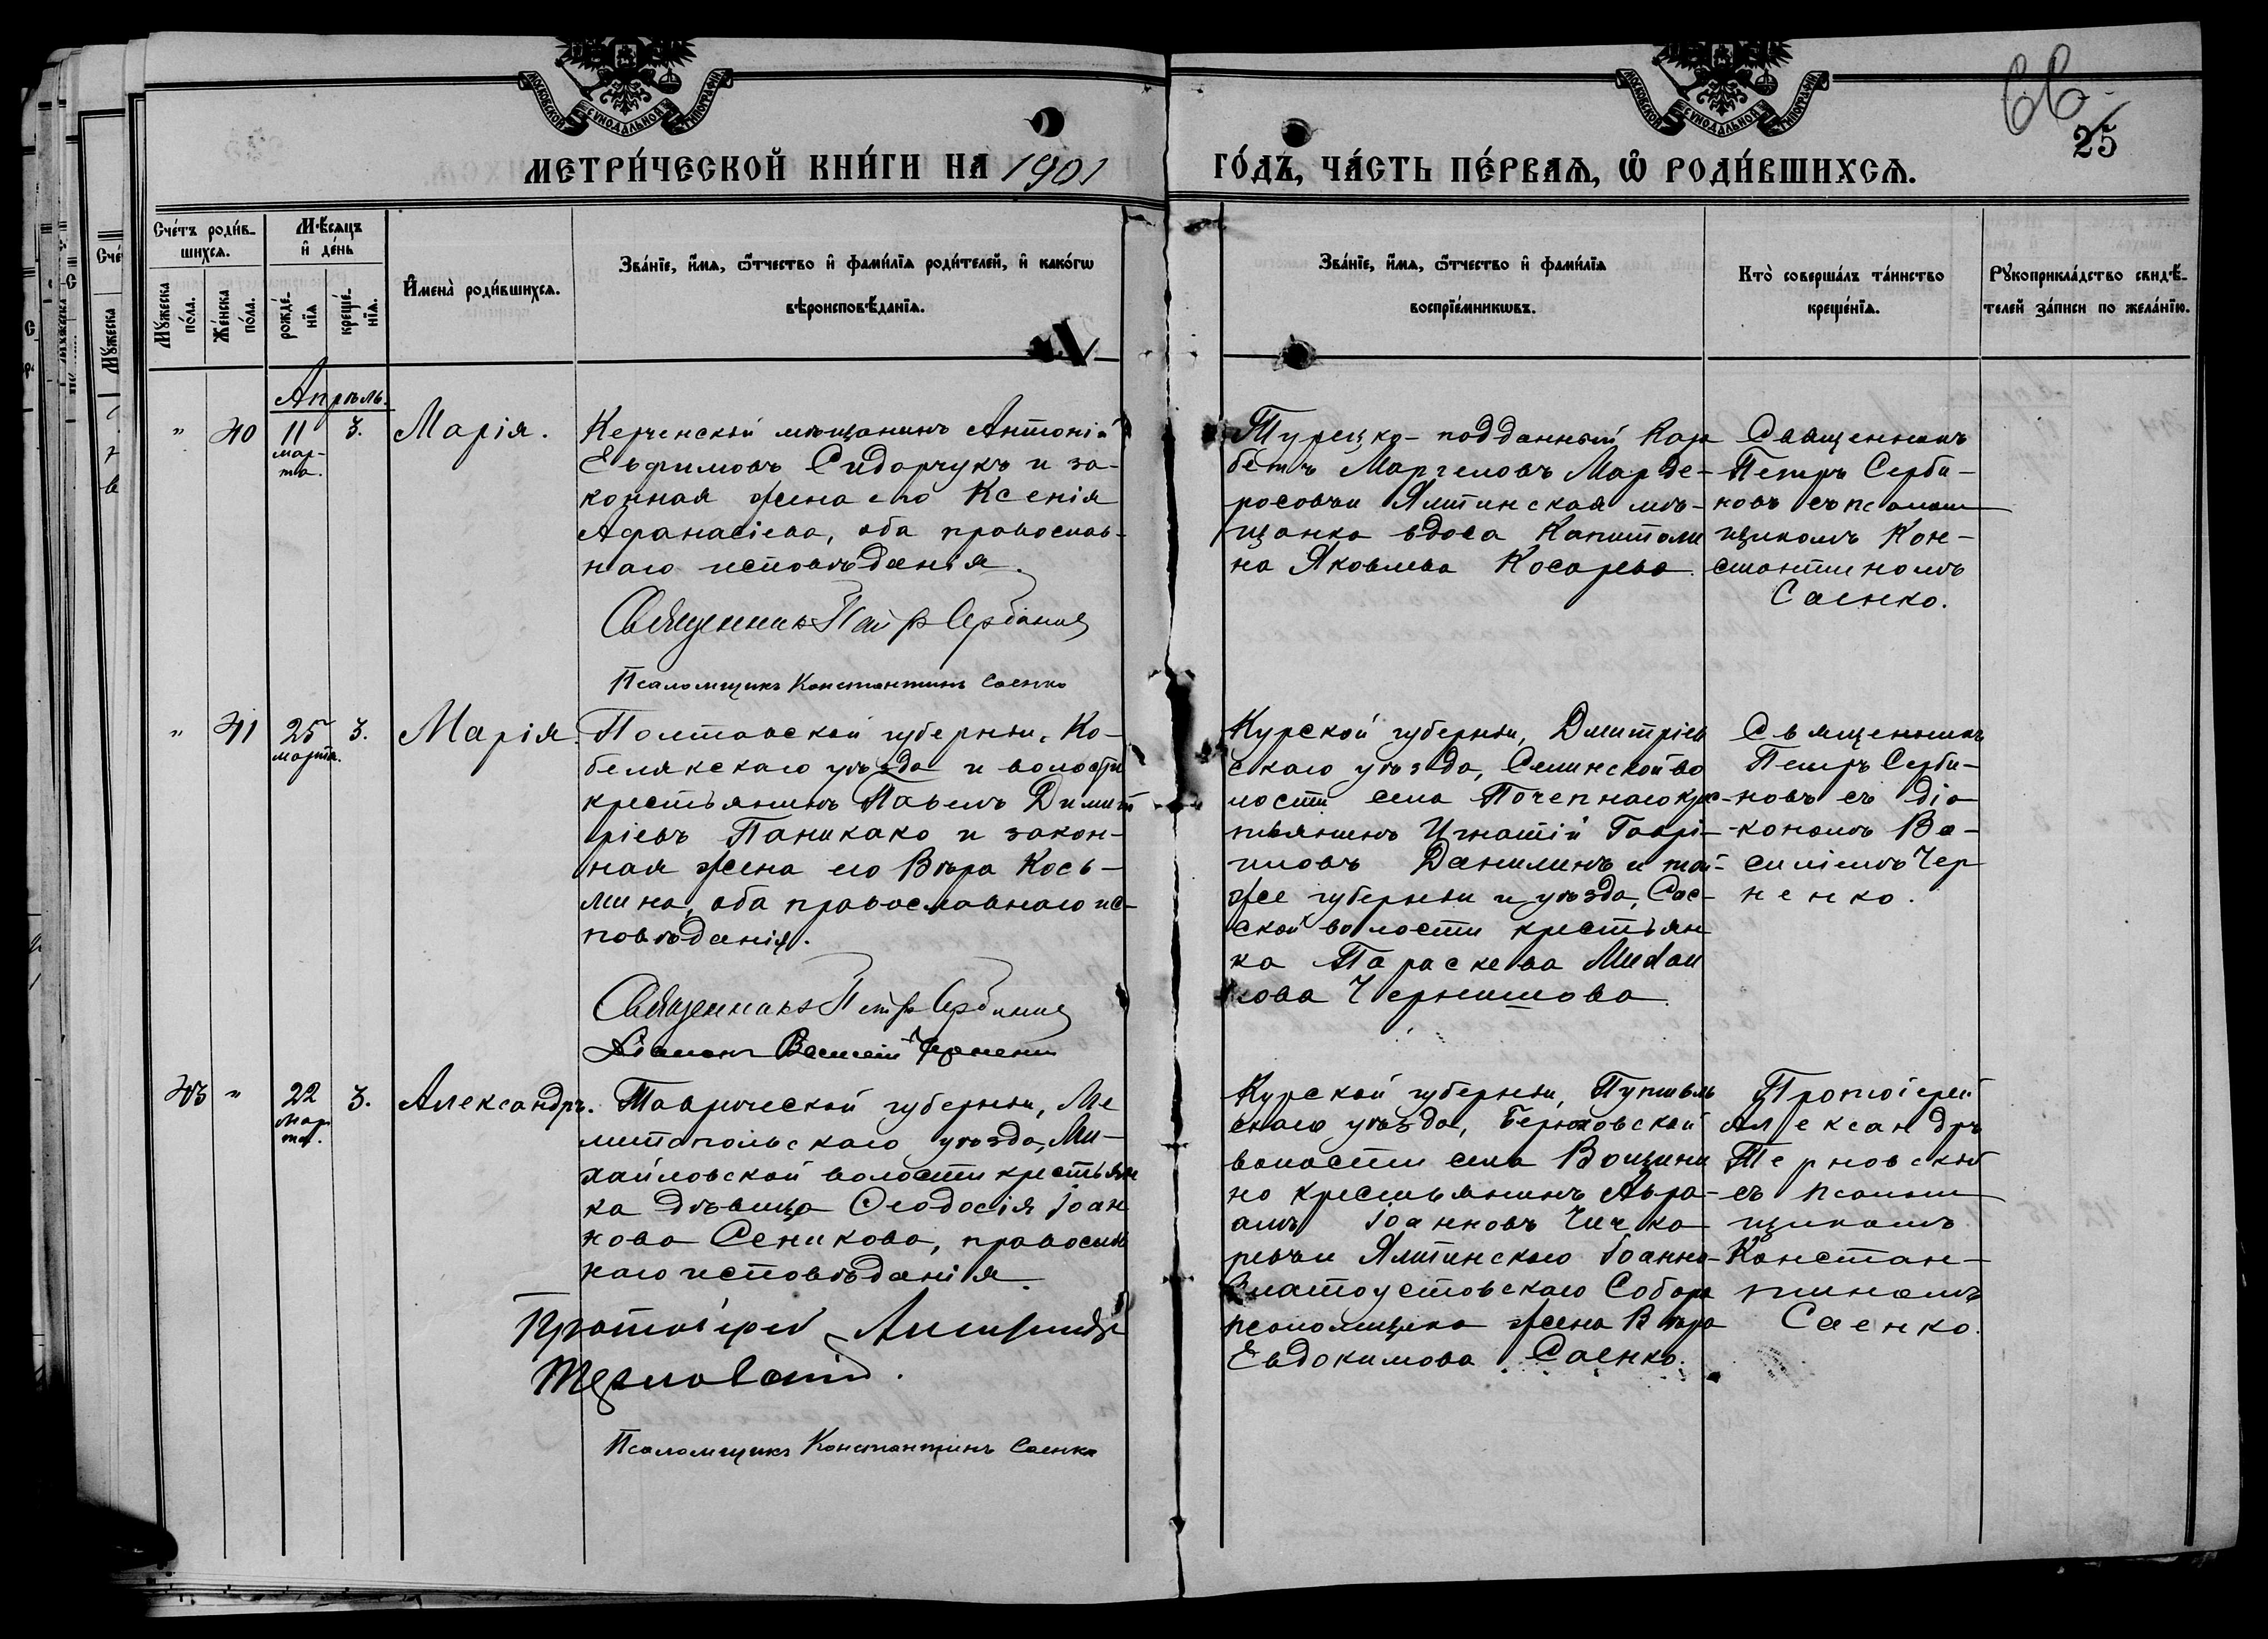 МОСКОВСКОЙ СѴНОДАЛЬНОЙ ТИПОГРАФІИ
МОСКОВСКОЙ СѴНОДАЛЬНОЙ ТИПОГРАФІИ
66.
25
МЕТРИ́ЧЕСКОЙ КНИ́ГИ НА 1901
ГО́ДЪ, ЧА́СТЬ ПЕ́РВАѦ, Ѡ҆ РОДИ́ВШИХСѦ.
Сче́тъ роди́в-
шихсѧ.
Мꙋ́жеска
по́ла.
Же́нска
по́ла.
Мѣ́сѧцъ
и҆ де́нь
рожде́-
нїѧ
креще́-
нїѧ.
И҆мена̀ роди́вшихсѧ.
Зва́нїе, и҆́мѧ, ѻ҆́тчество и҆ фами́лїѧ роди́телей, и҆ како́гѡ
вѣроисповѣ́данїѧ.
Зва́нїе, и҆́мѧ, ѻ҆́тчество и҆ фами́лїѧ
воспрїе́мникѡвъ.
Кто̀ соверша́лъ та́инство
креще́нїѧ.
Рꙋкоприкла́дство свидѣ́-
телей за́писи по жела́нїю.
Апрѣль.
"
40
11
мар-
та.
3.
Марія.
Керченскій мѣщанинъ Антоній
Евфимовъ Сидорчукъ и за-
конная жена его Ксенія
Афанасіева, оба православ-
наго исповѣданія.
Священникъ Петръ Сербиновъ
Псаломщикъ Константинъ Саенко
Турецко-подданный Кара
бетъ Маргеловъ Марде-
росовъ и Ялтинская мѣ-
щанка вдова Капитоли
на Яковлева Косарева.
Священникъ
Петръ Серби-
новъ съ псалом
щикомъ Кон-
стантиномъ
Саенко.
"
41
25
марта.
3.
Марія.
Полтавской губерніи, Ко-
белякскаго уѣзда и волости
крестьянинъ Павелъ Димит
ріевъ Паникако и закон-
ная жена его Вѣра Кось-
мина, оба православнаго ис-
повѣданія.
Священникъ Петръ Сербиновъ
Діаконъ Василій Черненко
Курской губерніи, Дмитріев
скаго уѣзда, Селинской во
лости села Почепнаго крес-
тьянинъ Игнатій Гаврі-
иловъ Данилинъ и той-
же губерніи и уѣзда,
ской волости крестьян
ка Параскева Михаи
лова Чернишова.
Священникъ
Петръ Серби-
новъ съ діа-
кономъ Ва-
силіемъ Чер
ненко.
43
"
22
мар
та.
3.
Александръ.
Таврической губерніи, Ме
литопольскаго уѣзда, Ми-
хайловской волости крестьян
ка дѣвица Ѳеодосія Іоан
нова Сеникова, православ
наго исповѣданія
Протоіерей Александръ
Терновскій.
Псаломщикъ Константинъ Саенко
Курской губерніи, Путивль
скаго уѣзда, Берюховской
волости села Вощини
но крестьянинъ Авра-
амъ Іоанновъ Чичка
ревъ и Ялтинскаго Іоанно-
Златоустовскаго Собора
псаломщика жена Вѣра
Евдокимова Саенко.
Протоіерей
Александръ
Терновскій
съ псалом
щикомъ
Констан-
тиномъ
Саенко.